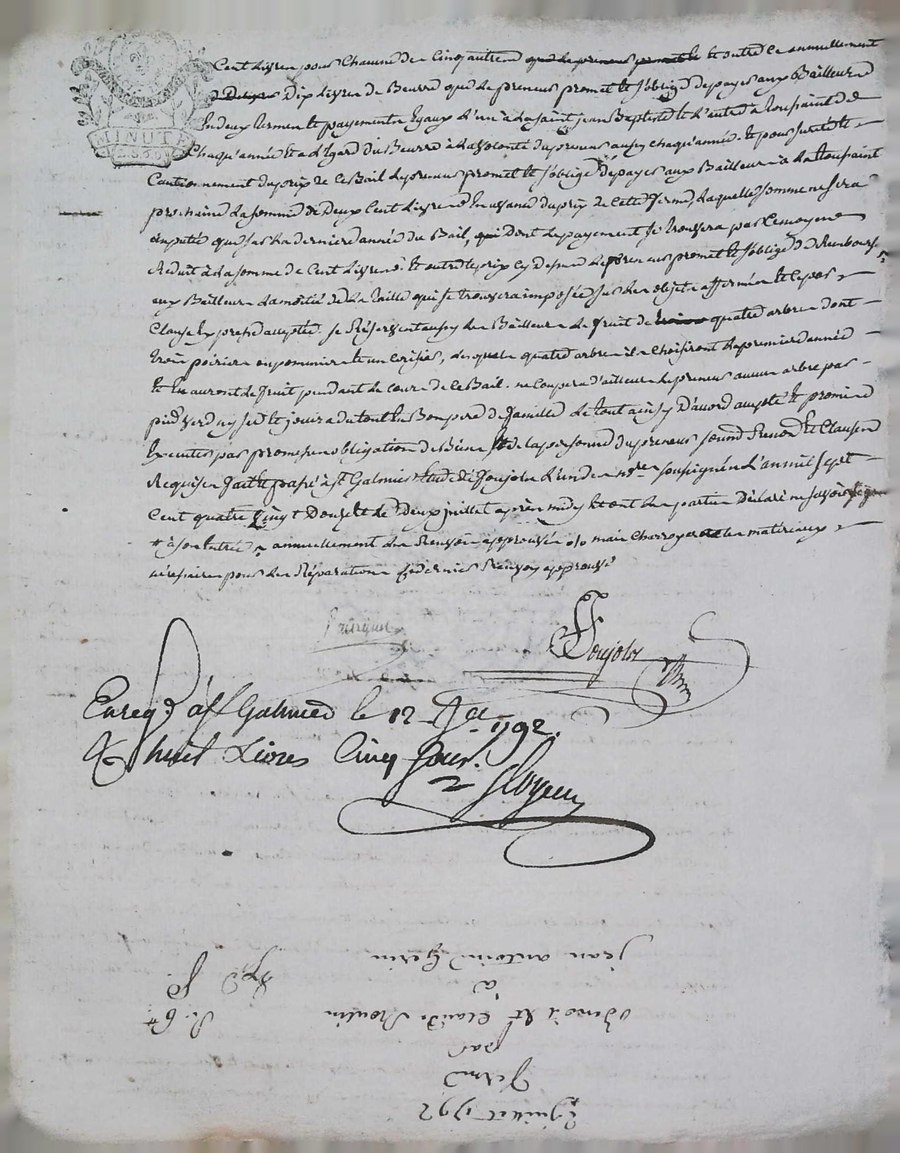 MINUTE
Cent Livres pour Chacune des Cinq autres que le preneur promet et outre ce annuellement
Dix Livres de Beurre que le preneur promet et s'oblige de payer aux Bailleurs
En deux termes et payements Egaux l'un a la saint jean Baptiste et l'autre a la toussaint de
Chaqu'année et a l'Egard du Beurre à la volonté du preneur aussy chaqu'année. Et pour sureté et
Cautionnement du prix de ce Bail le preneur promet et s'oblige de payer aux Bailleurs a la toussaint
prochaine la somme de Deux Cent Livres En avance du prix de cette ferme, laquelle somme ne sera
imputée que sur la derniere année du Bail, dont le payement se trouvera par ce moyen
Reduit à la somme de Cent Livres. Et outre le prix cy dessus le preneur promet et s'oblige de Rembourser
aux Bailleurs la moitié de la Taille qui se trouvera imposée sur les objets affermés et ce par
Clause Expresse au pacte. se Réservent aussy les Bailleurs le fruit de trois quatre arbres dont
trois poiriers ou pommiers et un cerisier, desquels quatre arbres ils choisiront la premiere année
et En auront le fruit pendant le cours de ce Bail. ne coupera d'ailleurs le preneur aucun arbre par
pied verd ny sec et jouira du tout En Bon pere de famille le tout ainsy d'accord au pacte et promis
Executer par promesses obligation de Biens et de la personne du preneur soumis. Renon. et Clauses
Requises fait et passé à St Galmier Etude de Soujolon l'un des nores soussignés l'an mil sept
Cent quatre Vingt Douze et le Deux juillet après midy et ont les parties Déclaré ne savoir signer
annuellement Renvois approuvés main Charroyer les matériaux
nécessaires pour les Réparations dernier Renvoy approuvé
Soujolon
Enreg. à St Galmier le 12 Jet 1792.
R huit Livres Cinq sous.
2 juillet 1792
ferme
par
Benoit et Claude
à
jean antoine Gerin
R. 6